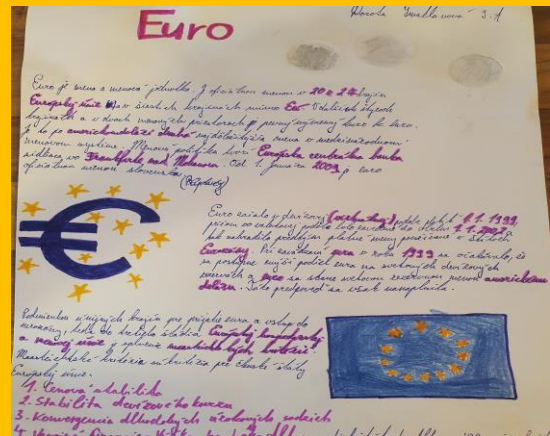 Euro
3.A
Euro je mena a menová jednotka. Je oficiálnou menou v 20 z 27 krajín
Európskej únie a v šiestich krajinách mimo EÚ. V ďalších štyroch
krajinách a v dvoch menových je pevný výmenný kurz k euru.
Je to po americkom dolári druhá najdôležitejšia mena v medzinárodnom
menovom systéme. Menovú politiku tvorí Európska centrálna banka
sídliaca vo Frankfurte nad Mohanom. Od 1. januára 2009 je euro
oficiálnou menou slovenska
€
Euro začalo v devízovej podobe platiť 1.1.1999
1.1.2002
platné meny používané v štátoch
Eurozóny Pri zavedení eura v roku 1999 sa očakávalo, že
sa postupne zvýši podiel eura na svetových devízových
rezervách a euro sa stane svetovou rezervnou menou
doláru. Táto predpoveď sa však nenaplnila.
Podmienkou členských krajín pre prijatie eura a vstup do
eurozóny, teda do tretieho štádia Európskej hospodárskej
a menovej únie je splnenie maastrichtských kritérií.
Maastrichtské kritéria sú kritéria pre členské štáty
Európskej únie.
1. Cenová stabilita
2. Stabilita devízového kurzu
3. Konvergencia dlhodobých úrokových sadzieb
4.